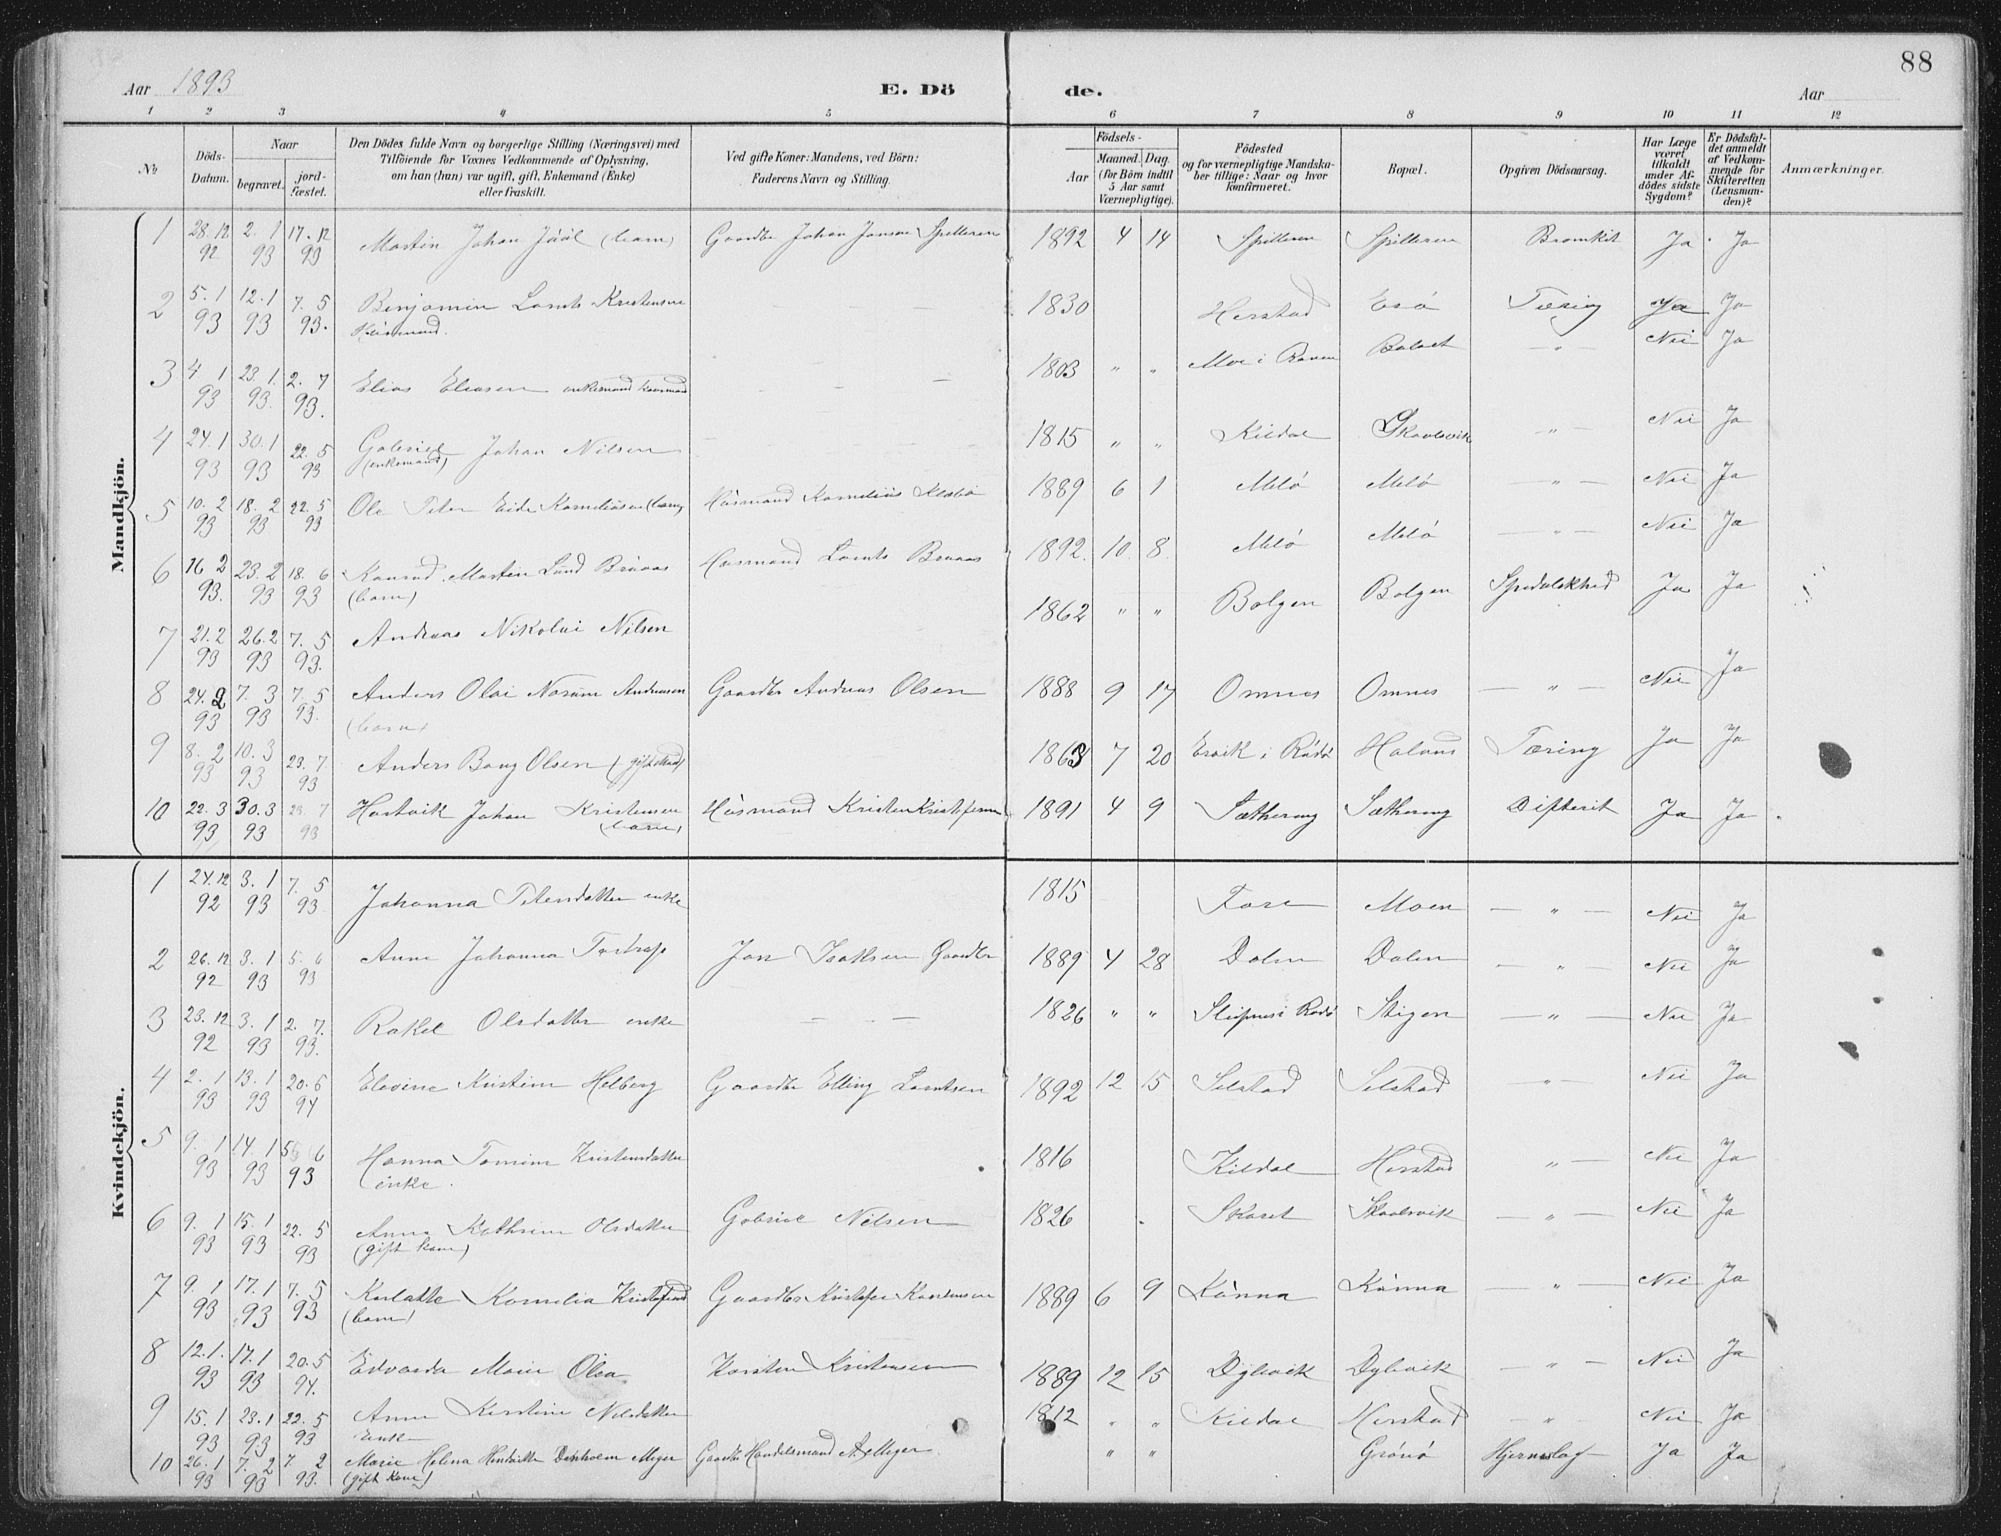 88
Aar 1893
E. Dö
de.
Aar
1 2 3 4 5 6 7 8 9 10 11 12
№
Döds-Datum.
Naar
begravet.
jord-fæstet.
Den Dödes fulde Navn og borgerlige Stilling (Næringsvei) med
Tilföiende for Voxnes Vedkommende af Oplysning,
om han (hun) var ugift, gift, Enkemand (Enke)
eller fraskilt.
Ved gifte Koner: Mandens, ved Börn:
Faderens Navn og Stilling.
Födsels-
Aar
Maaned. Dag.
(for Börn indtil
5 Aar samt
Værnepligtige).
Födested
og for værnepligtige Mandska-
ber tillige: Naar og hvor
konfirmeret.
Bopæl.
Opgiven Dödsaarsag.
Har Læge
været
tilkaldt
under Af-
dödes sidste
Sygdom?
Er Dödsfal-
det anmeldt
af Vedkom-
mende for
Skifteretten
(Lensman-
den)?
Anmærkninger.
Mandkjön.
1 28.12 92 2.1 93 17.12 93 Martin Johan Juul (barn) Gaardbr Johan Jonson Spilderen 1892 4 14 Spilderen Spilderen Bronkit Ja Ja
2 5.1 93 12.1 93 7.5 93. Benjamin Lorents Kristensen Husmand. — 1830 Herstad Esö Tæring Ja Ja
3 4 1 93 23 1. 93. 2. 7 93. Elias Eliasen enkemand — 1803 " " Moe i Ranen Bolset — " — Nei Ja
4 24.1 93 30.1 93 22.5 93 Gabriel Johan Nilsen (enkemand) — 1815 " " Kildal Skavlsvik — " — Nei Ja
5 10.2 93 18.2 93 22.5 93 Ole Peter Eide Korneliusen (barn) Husmand Kornelius 1889 6 1 Melö Melö — " — Nei Ja
6 16 2 93. 23.2 93 18.6 93 Konrad Martin Lund Bruaas (barn) Husmand Lorents Bruaas 1892. 10. 8. Melö Melö — " — Nei Ja
7 21.2 93 26.2 93 7.5 93. Andreas Nikolai Nilsen 1862 " " Bolgen Bolgen Spedalskhed Ja Ja
8 24.2 93 7.3 93 7.5 93. Anders Olai Norum Andreasen (barn) Gaardbr Andreas Olsen 1888 9 17 Omnes Omnes — " — Nei Ja
9 8.2 93 10.3 93 23.7 93 Anders Bang Olsen 1863 7 20 Esvik i Rödö Tæring Ja Ja
10 22.3 93 30.3 93 23.7 93 Hartvik Johan Kristensen (barn) Husmand Kristen Kristofersen 1891 4 9 Sætherung Sætherung Difterit Ja Ja
Kvindekjön.
1 24.12 92 3.1 93 7.5 93. Johanna Petersdatter enke 1815 Fore Moen — " — Nei Ja
2 26.12 92 3.1 93 5.6 93 Anne Johanna Jon Isaksen Gaardbr 1889 4 28 Dalen Dalen — " — Nei Ja
3 23.12 92 3.1 93 2.7. 93. Rakel Olsdatter enke — — — 1826 " " Stigen — " — Nei Ja
4 2.1 93 13.1 93 20.6 94 Elevine Kristine Helberg Gaardbr Elling Lorntsen 1892 12 15 Selstad Selstad " — Nei Ja
5 9.1 93 14.1 93 5 6 93 Hanna Tomine Kristensdatter enke. 1816 Kildal Herstad " — Nei Ja
6 9.1 93 15.1 93 22.5 93 Anna Kathrine Olsdatter (gift kone) Gabriel Nilsen 1826 Skaret Skavlsvik — " — Nei Ja
7 9.1 93 17.1 93 7.5 93 Kornelia (barn) Gaardbr Kristofer 1889 6 9 Kunna Kunna — " — Nei Ja
8 12.1. 93 17.1 93 20.5 94. Edvarda Marie Olsa Karsten Kristensen 1889 12 15 Dybvik Dybvik — " — Nei Ja
9 15.1 93 23.1 93 22.5 93 Anne Kirstine Nilsdatter Enke 1812 " " Kildal Herstad — " Nei Ja
10 26.1 93 7.2 93 7. 2 93. Marie Helena Henriette Meyer (gift kone) Gaardbr Handelsmand Meyer. " " Grönö Hjerneslag Ja Ja